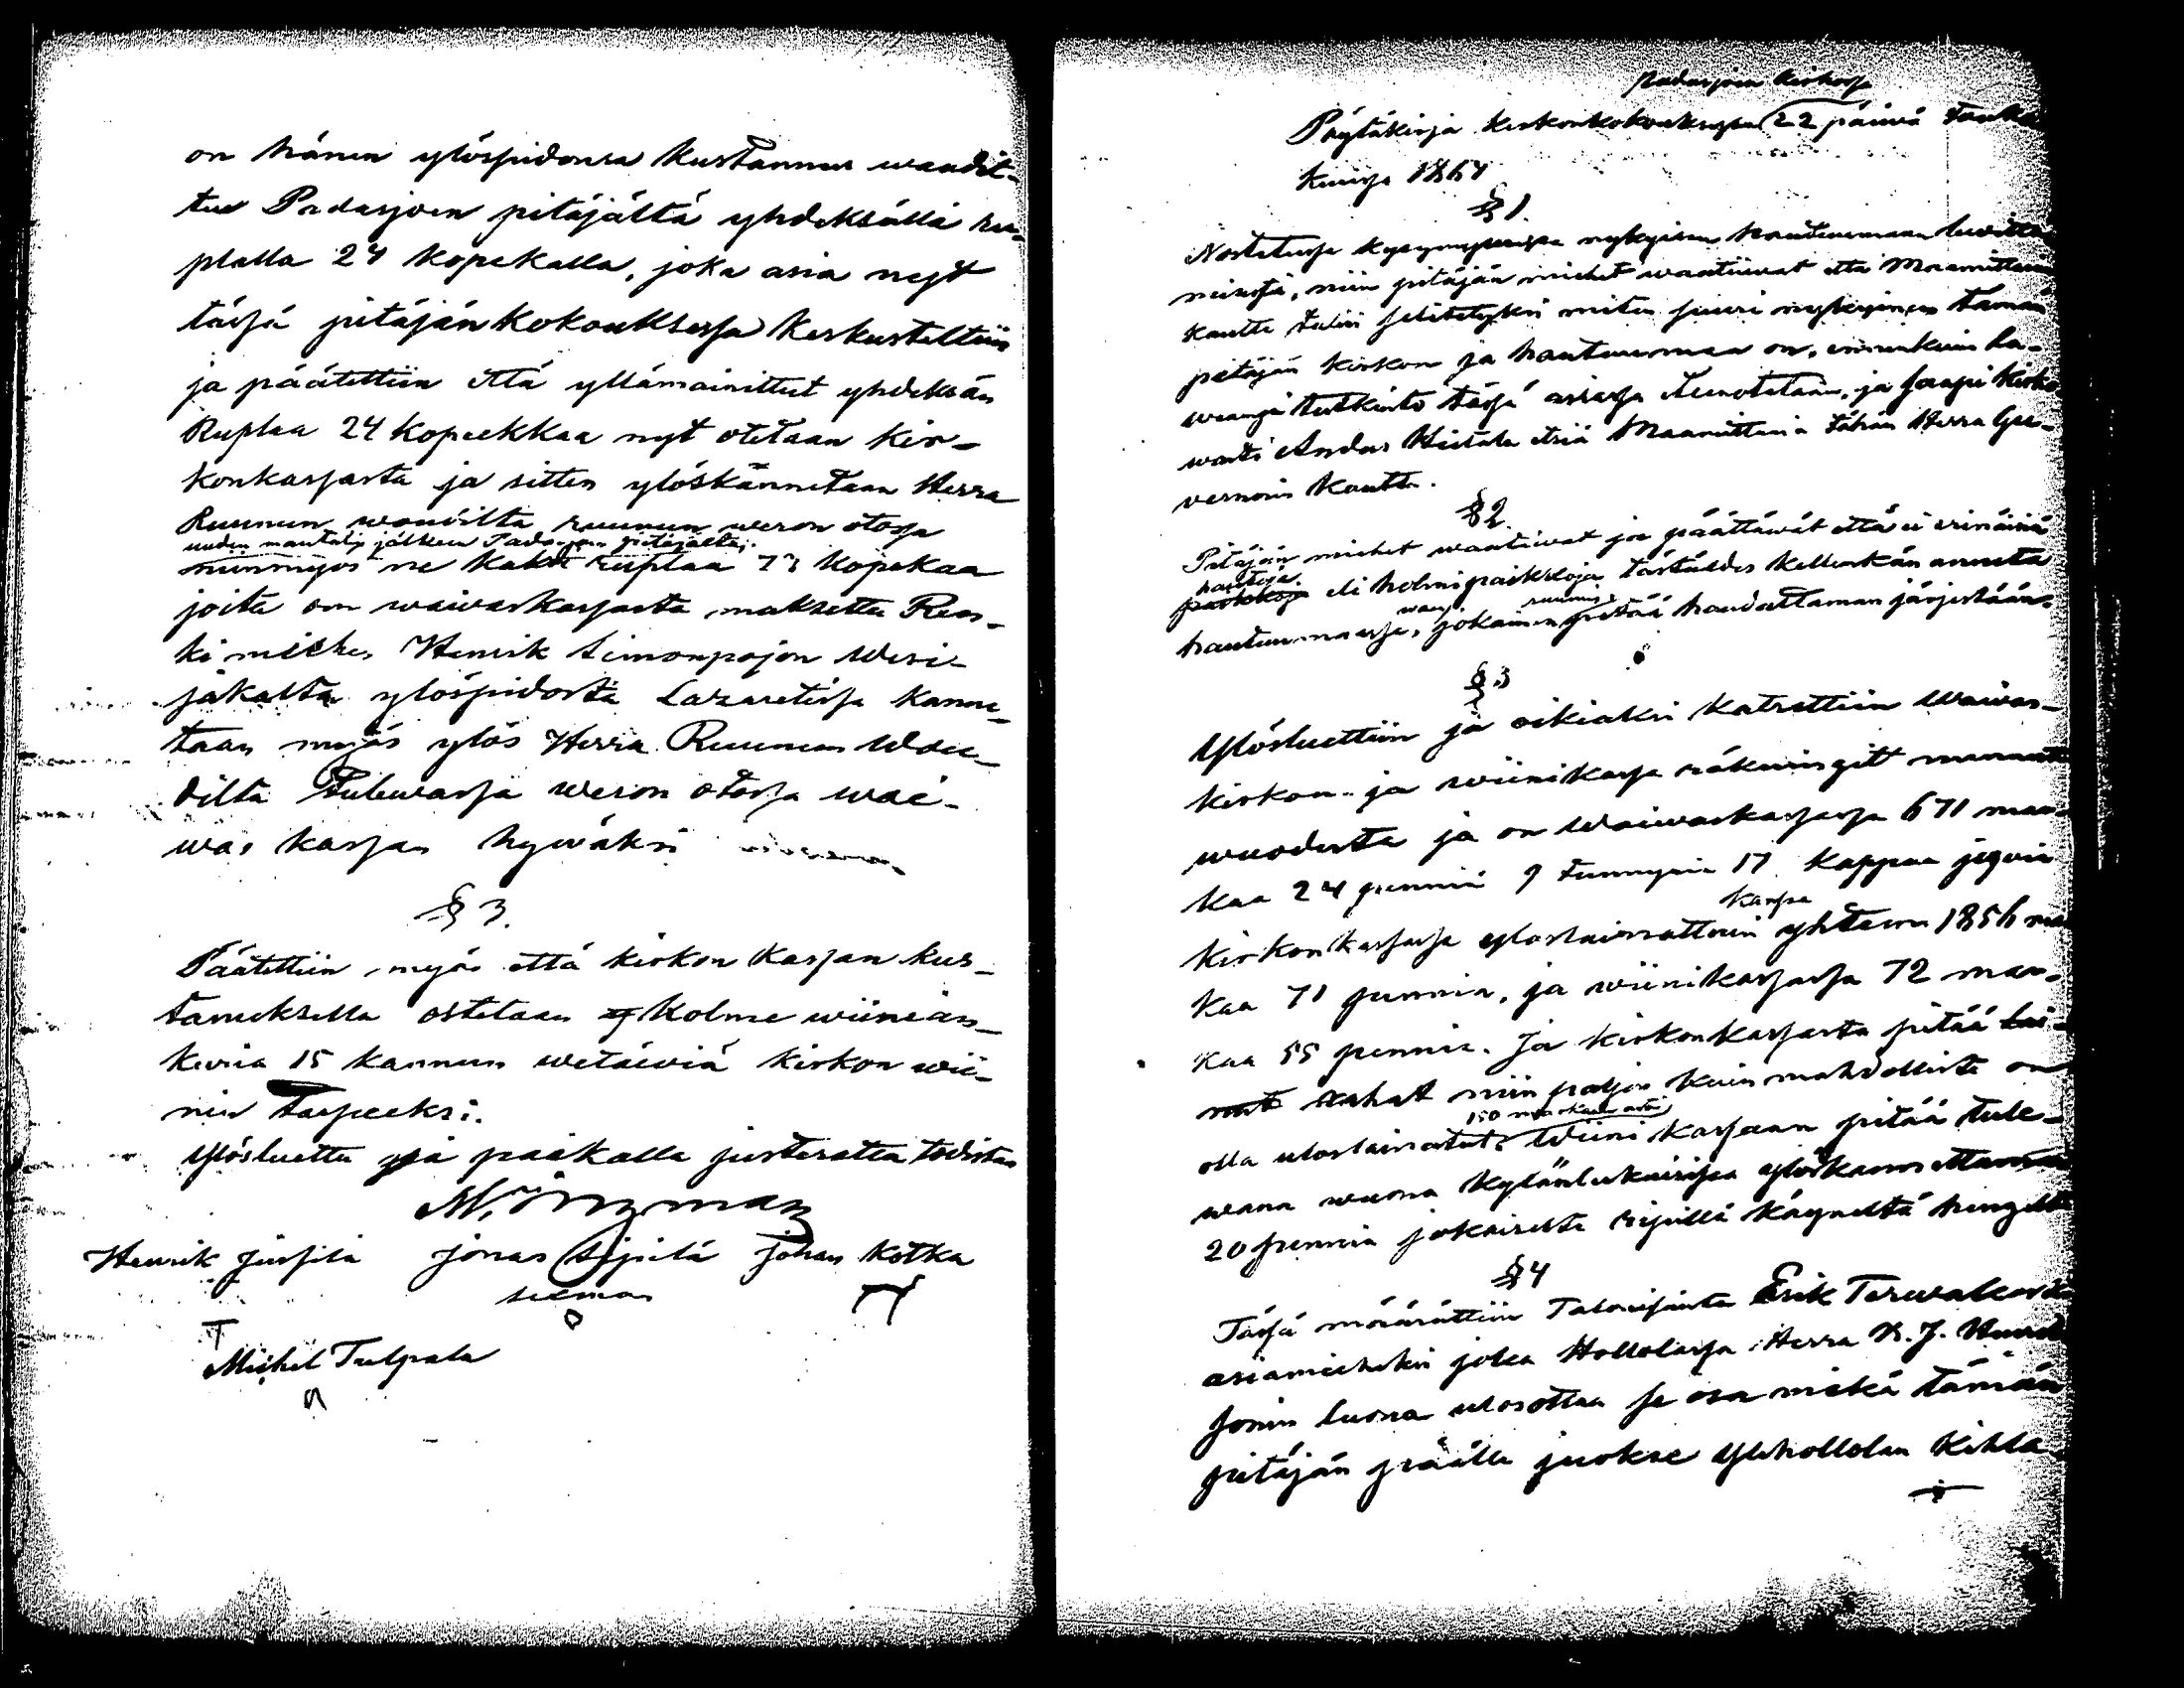 on hänen ylöspidonsa Kustannus waadit-
tu Padasjoen pitäjältä yhdeksällä ru-
plalla 24 kopekalla, joka asia nyt
täsſä pitäjänkokouksesſa Keskusteltiin
ja päätettiin että yllämainittut yhdeksän
Ruplaa 24 kopeekkaa nyt otetaan Kir-
konkasſasta ja sitten ylöskannetaan Herra
Ruunun woudilta ruunun weron otosſa
uuden mantalin jälkeen Padasjoen pitäjältä;
niinmyös ne Kaksi ruplaa 73 kopekaa
joita on waiwaskasſasta maksettu Ren-
ki miehen Henrik Simonpojan Weri-
jakalta ylöspidosta Lazaretisſa kanne-
taan myös ylös Herra Ruunun Wou-
dilta Tulewasſa weron otosſa wai-
was kasſan hywäksi
§ 3.
Päätettiin myös että kirkon Kasſan kus-
tanuksella ostetaan Kolme wiinian-
keria 15 kannun wetäwiä kirkon wii-
nin Tarpeeksi.
Ylösluettu ja paikalla justerattu todistaa
Henrik Jusſila Jonas Sipilä Johan Kotka
Michel Tulpala
Padasjoen Kirkosſa
Pöytäkirja kirkonkokouksesſa 22 päiwä Touko
Kuusſa 1864
§ 1.
Nostetusſa kysymyksesſä nykyisen hautuumaan lewittä-
misestä, niin pitäjän miehet waatiiwat että Maamittarin
kautta tulisi selitetyksi miten suuri nykyinen tämän
pitäjän kirkon ja hautuumaa on, ennenkuin la-
weampi tutkinto täsſä asiasſa edesotetaan, ja saapi Kirko
wäärti Andus Heikala etsiä Maamittaria tähän Herra Gu-
vernörin Kautta.
§ 2.
Pitäjän miehet waatiiwat ja päättäwät että ei erinäisiä
hautoja eli holmipaikkoja, tästäedes kellenkän anneta
hautuumaasſa, waan jokainen ruumis pitää haudattaman järjestään.
§ 3
Ylösluettiin ja oikiaksi Katsottiin Waiwas-
kirkon- ja wiinikasſa räkningit mennestä
wuodesta ja on Waiwaskasſasſa 671 mar-
kaa 24 penniä 9 tunnyriä 17 Kappaa jywiä
Kirkonkasſasſa yloslainattuin kansſa yhtenä 1856 mar
kaa 71 penniä, ja wiinikasſasſa 72 mar-
kaa 55 penniä. Ja kirkonkasſasta pitää
rahat niin paljon kuin mahdollista on
olla uloslainatut. Wiini kasſaan pitää tule-
wana wuona Kylänlukuisisſa ylöskannettaman
20 penniä jokaiselta ripillä Käyneltä hengeltä
§ 4
Täsſä määrättiin Talonisäntä Erik Terwakoski
asiamieheksi joka Hollolasſa Herra K. J.
luona ulosottaa se osa mikä tämän
pitäjän päälle juokse Ylihollolan Kihla-